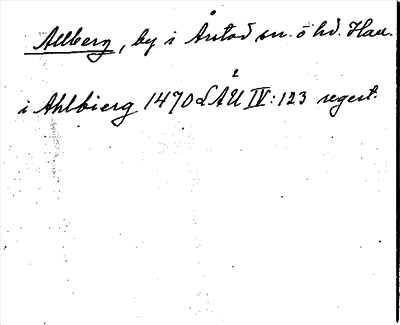 Allberg, by i Åsted sn. ö hd. Hall.
i Ahlbierg 1470 LÅU IV:123 regest.